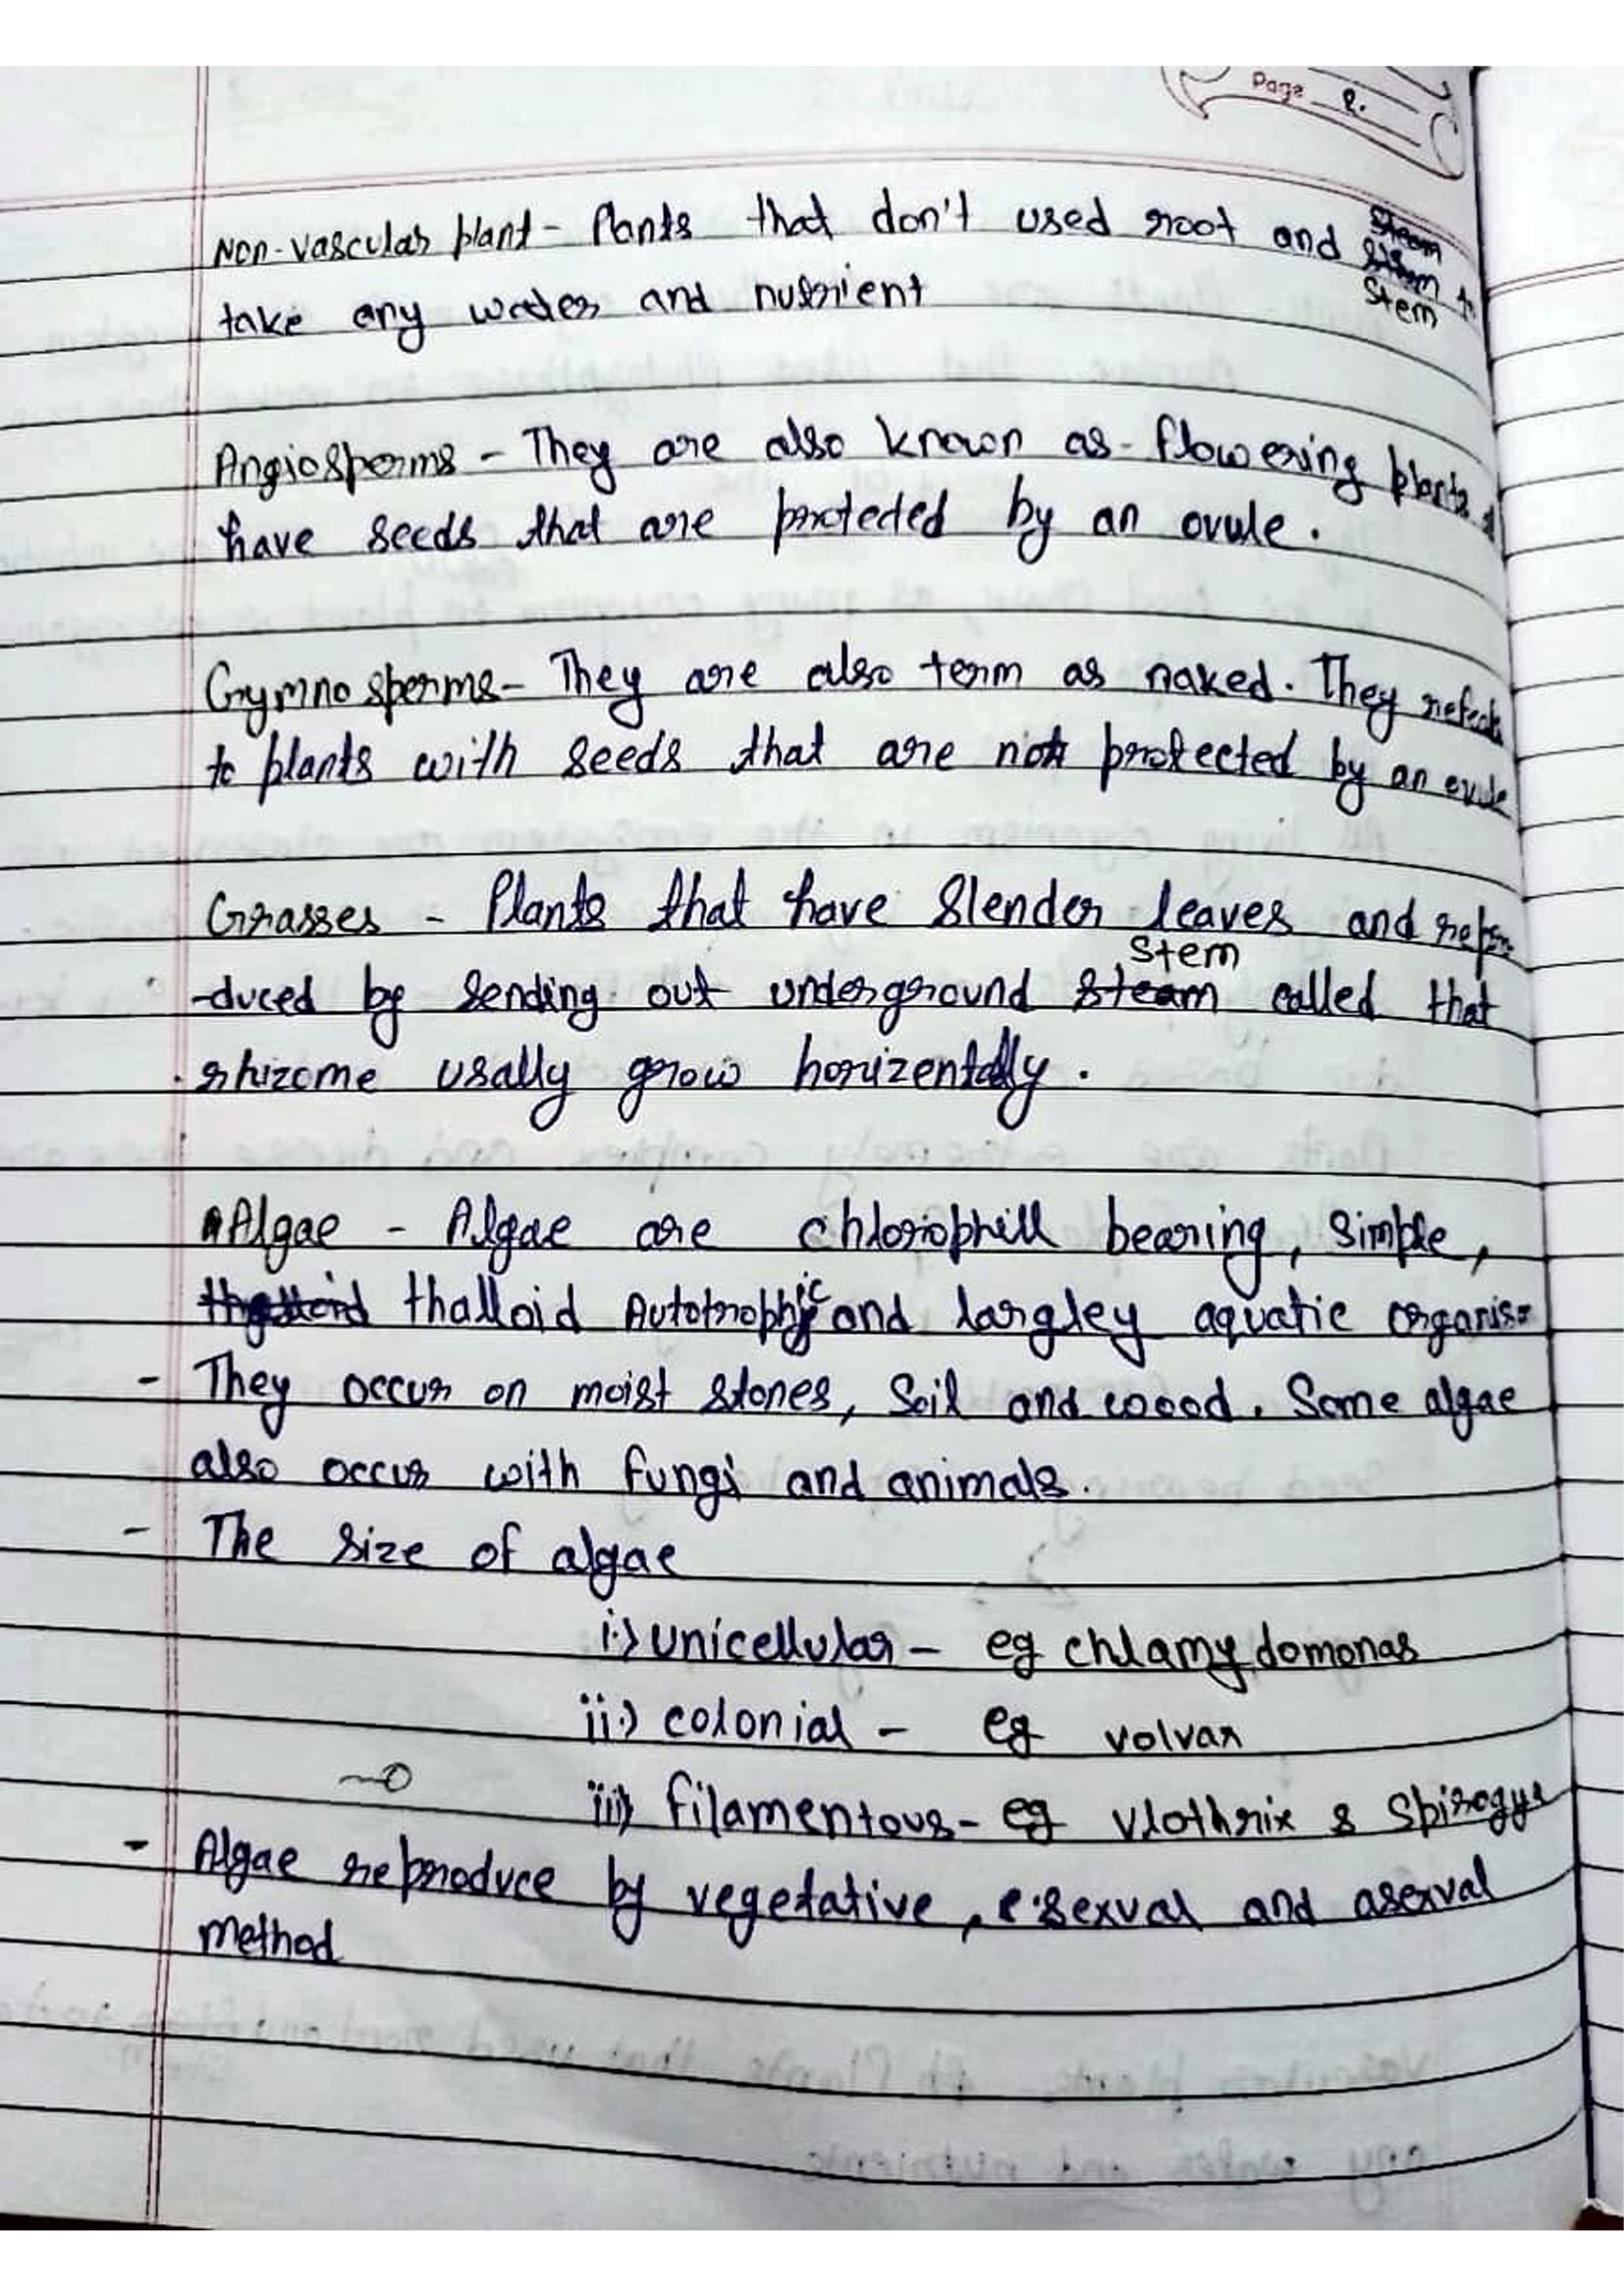 Page 2.
Non-vascular plant - Plants that don't used root and
Stem to
take any water and nutrient
Angiosperms - They are also known as - flowering plants
have seeds that are protected by an ovule.
Gymnosperms - They are also term as naked. They
to plants with seeds that are not protected by an ovule
Grasses - Plants that have slender leaves and repro
Stem
-duced by sending out underground steam called that
rhizome usally grow horizentally.
Algae - Algae are chlorophill bearing, simple,
thalloid Autotrophic and largley aquatic organis-
- They occur on moist stones, soil and wood. Some algae
also occur with fungi and animals.
- The size of algae
i.) unicellular - eg chlamydomonas
ii.) colonial - eg volvax
iii) filamentous - eg Vlothrix & Spirogyr
- Algae reproduce by vegetative, sexual and asexual
method